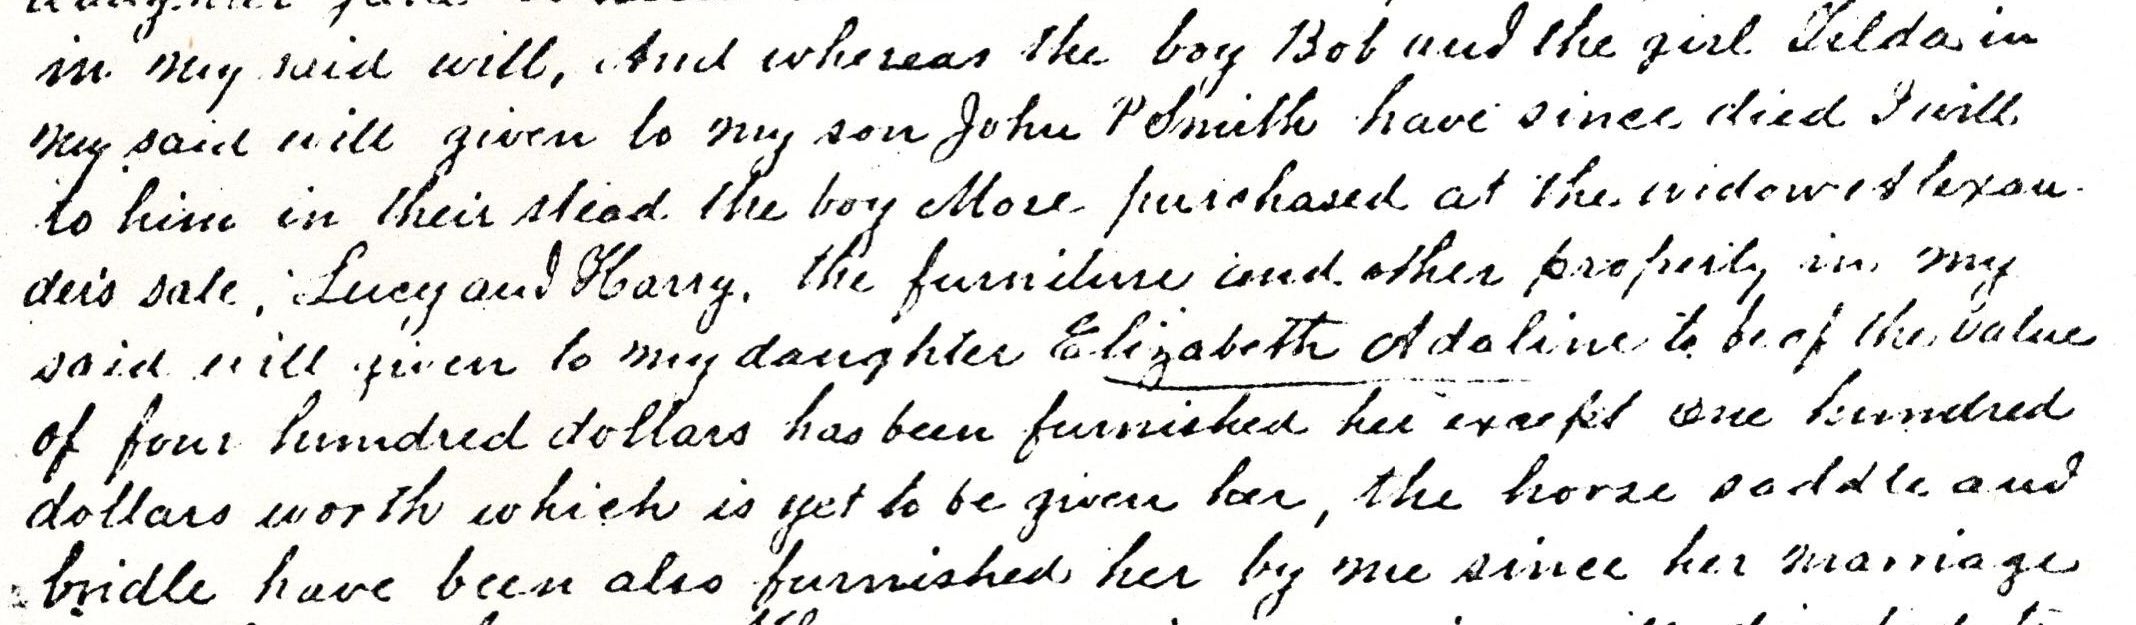 in my said will, And whereas the boy Bob and the girl Tilda in
my said will given to my son John P Smith have since died I will
to him in their stead the boy Mose purchased at the widow Alexan-
ders sale, Lucy and Harry, the furniture and other property in my
said will given to my daughter Elizabeth Adaline to be of the value
of four hundred dollars has been furnished her except one hundred
dollars worth which is yet to be given her, the horse saddle and
bridle have been also furnished her by me since her marriage